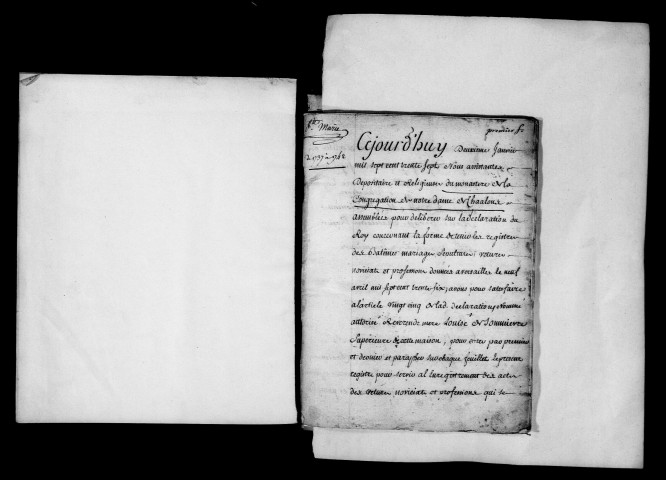 Ste Marie
premier fo
1737 à 1762
Cejourd'huy Deuxieme Janvier
mil sept cent trente sept Nous assistantes
Depositaire et Religieuse du monastere de la
Congregation de notre dame de Chaalons
assemblées pour deliberer sur la declaration du
Roy concernant la forme de tenir les registres
des Batêmes mariage sepultures vetures
noviciat et profession données a versailles le neuf
avril mil sept cent trente six, avons pour satisfaire
a l'article vingt cinq de lad. declaration, Nommé
authorisé Reverende mere Louise de
Superieure de cette maison, pour cotter par premier
et dernier et parapher sur chaque feuillet le present
registre pour servir a l'enregistrement des actes
des veture noviciat et professions qui se